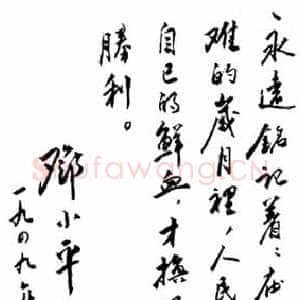 永远銘记着：在
难的歲月裡，人民
自己的鮮血，才换
勝利。
鄧小平
一九四九年
Shufawang.CN